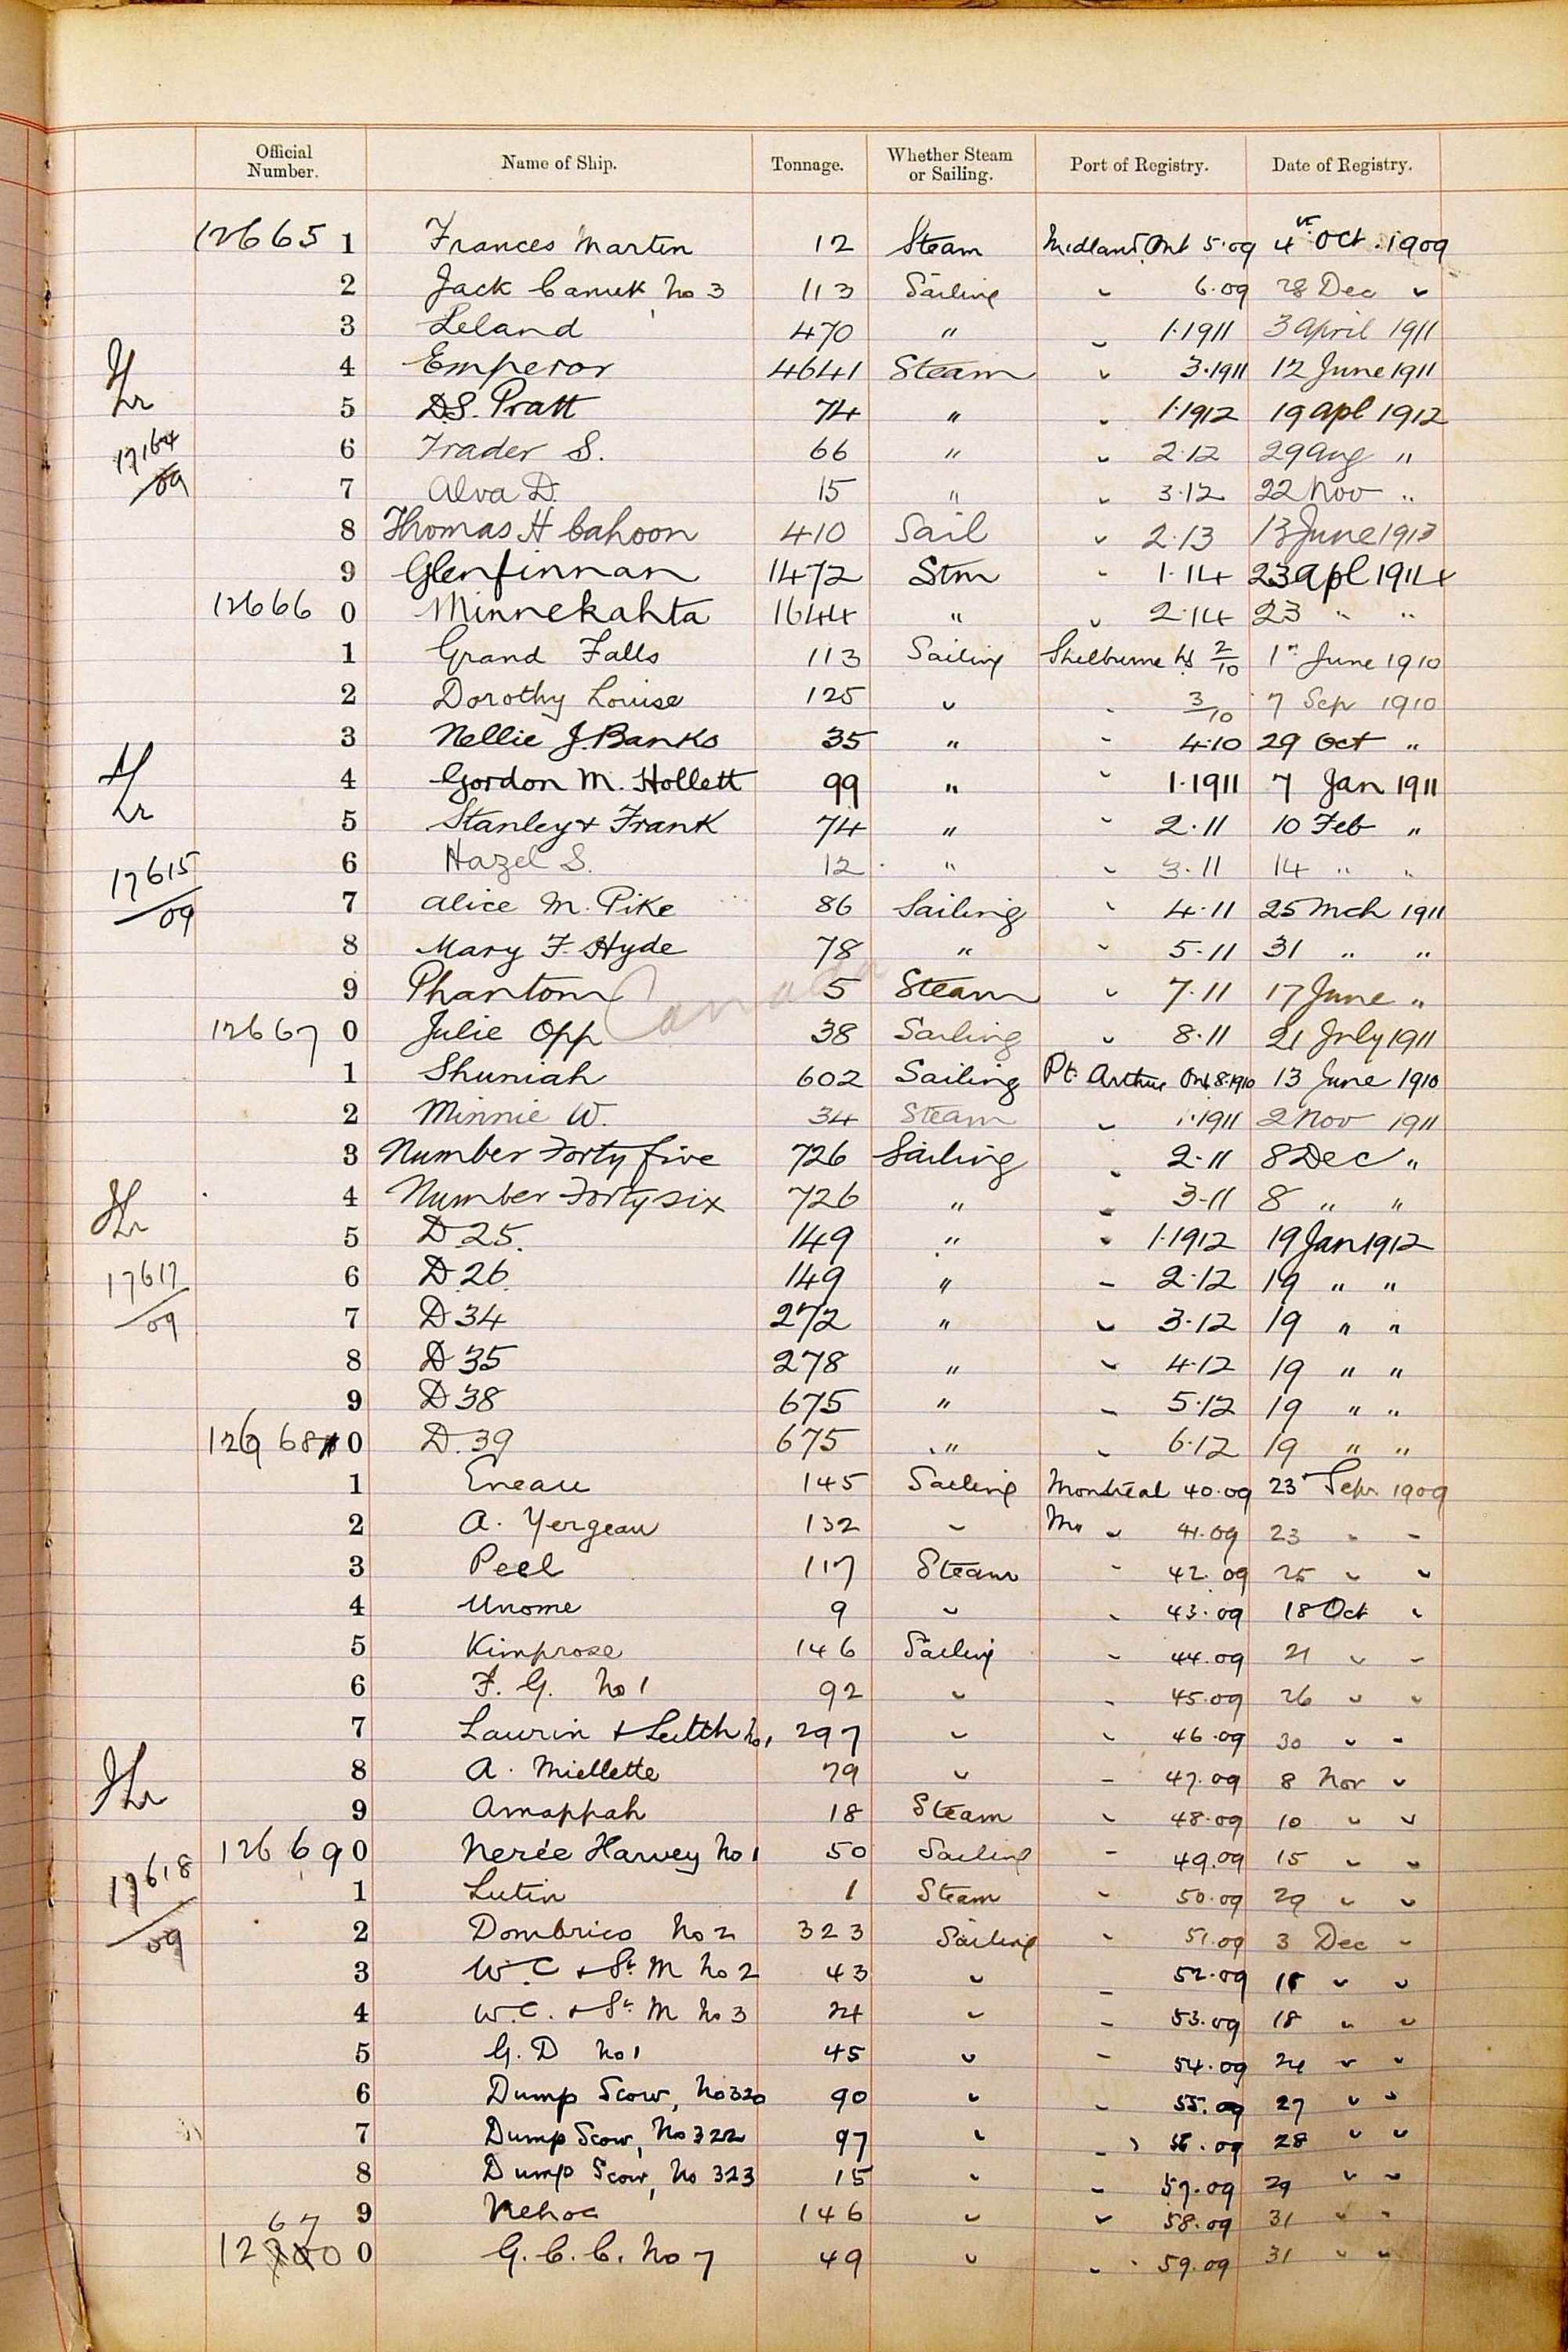 Official Number. Name of Ship. Tonnage. Whether Steam or Sailing. Port of Registry. Date of Registry.
12665 1 Frances Martin 12 Steam Midland Ont 5.09 4 Oct. 1909
2 Jack Canuck No 3 113 Sailing " 6.09 28 Dec "
3 Leland 470 " " 1.1911 3 April 1911
4 Emperor 4641 Steam " 3.1911 12 June 1911
5 D.S. Pratt 74 " " 1.1912 19 Apl 1912
6 Trader S. 66 " " 2.12 29 Aug "
17164/09
7 Alva D. 15 " " 3.12 22 Nov "
8 Thomas H Cahoon 410 Sail " 2.13 13 June 1913
9 Glenfinnan 1472 Stm " 1.14 23 Apl 1914
12666 0 Minnekahta 1644 " " 2.14 23 " "
1 Grand Falls 113 Sailing Shelburne NS 2/10 1st June 1910
2 Dorothy Louise 125 " " 3/10 7 Sep 1910
3 Nellie J. Banks 35 " " 4.10 29 Oct "
4 Gordon M. Hollett 99 " " 1.1911 7 Jan 1911
5 Stanley & Frank 74 " " 2.11 10 Feb "
6 Hazel S. 12 " " 3.11 14 " "
17615/09
7 Alice M. Pike 86 Sailing " 4.11 25 Mch 1911
8 Mary F. Hyde 78 " " 5.11 31 " "
9 Phantom 5 Steam " 7.11 17 June "
Canada
12667 0 Julie Opp 38 Sailing " 8.11 21 July 1911
1 Shuniah 602 Sailing Pt. Arthur Ont 8.1910 13 June 1910
2 Minnie W. 34 Steam " 1.1911 2 Nov 1911
3 Number Forty five 726 Sailing " 2.11 8 Dec "
4 Number Forty six 726 " " 3.11 8 " "
5 D 25. 149 " " 1.1912 19 Jan 1912
6 D 26. 149 " " 2.12 19 " "
17617/09
7 D 34 272 " " 3.12 19 " "
8 D 35 278 " " 4.12 19 " "
9 D 38 675 " " 5.12 19 " "
12668 0 D. 39 675 " " 6.12 19 " "
1 Eneau 145 Sailing Montreal 40.09 23 Sepr 1909
2 A. Yergeau 132 " " 41.09 23 " "
3 Peel 117 Steam " 42.09 25 " "
4 Unome 9 " " 43.09 18 Oct "
5 Kimprose 146 Sailing " 44.09 21 " "
6 F. G. No 1 92 " " 45.09 26 " "
7 Laurin & Leitch No 1 297 " " 46.09 30 " "
8 A. Miellette 79 " " 47.09 8 Nov "
9 Amappah 18 Steam " 48.09 10 " "
12669 0 Nerée Harvey No 1 50 Sailing " 49.09 15 " "
17618/09
1 Lutin 1 Steam " 50.09 29 " "
2 Dombrico No 2 323 Sailing " 51.09 3 Dec "
3 W. C & St. M No 2 43 " " 52.09 18 " "
4 W.C. & St. M No 3 24 " " 53.09 18 " "
5 G. D No 1 45 " " 54.09 24 " "
6 Dump Scow, No 320 90 " " 55.09 27 " "
7 Dump Scow, No 322 97 " " 56.09 28 " "
8 Dump Scow, No 323 15 " " 57.09 29 " "
9 Nehoc 146 " " 58.09 31 " "
12670 0 G. C. C. No 7 49 " " 59.09 31 " "